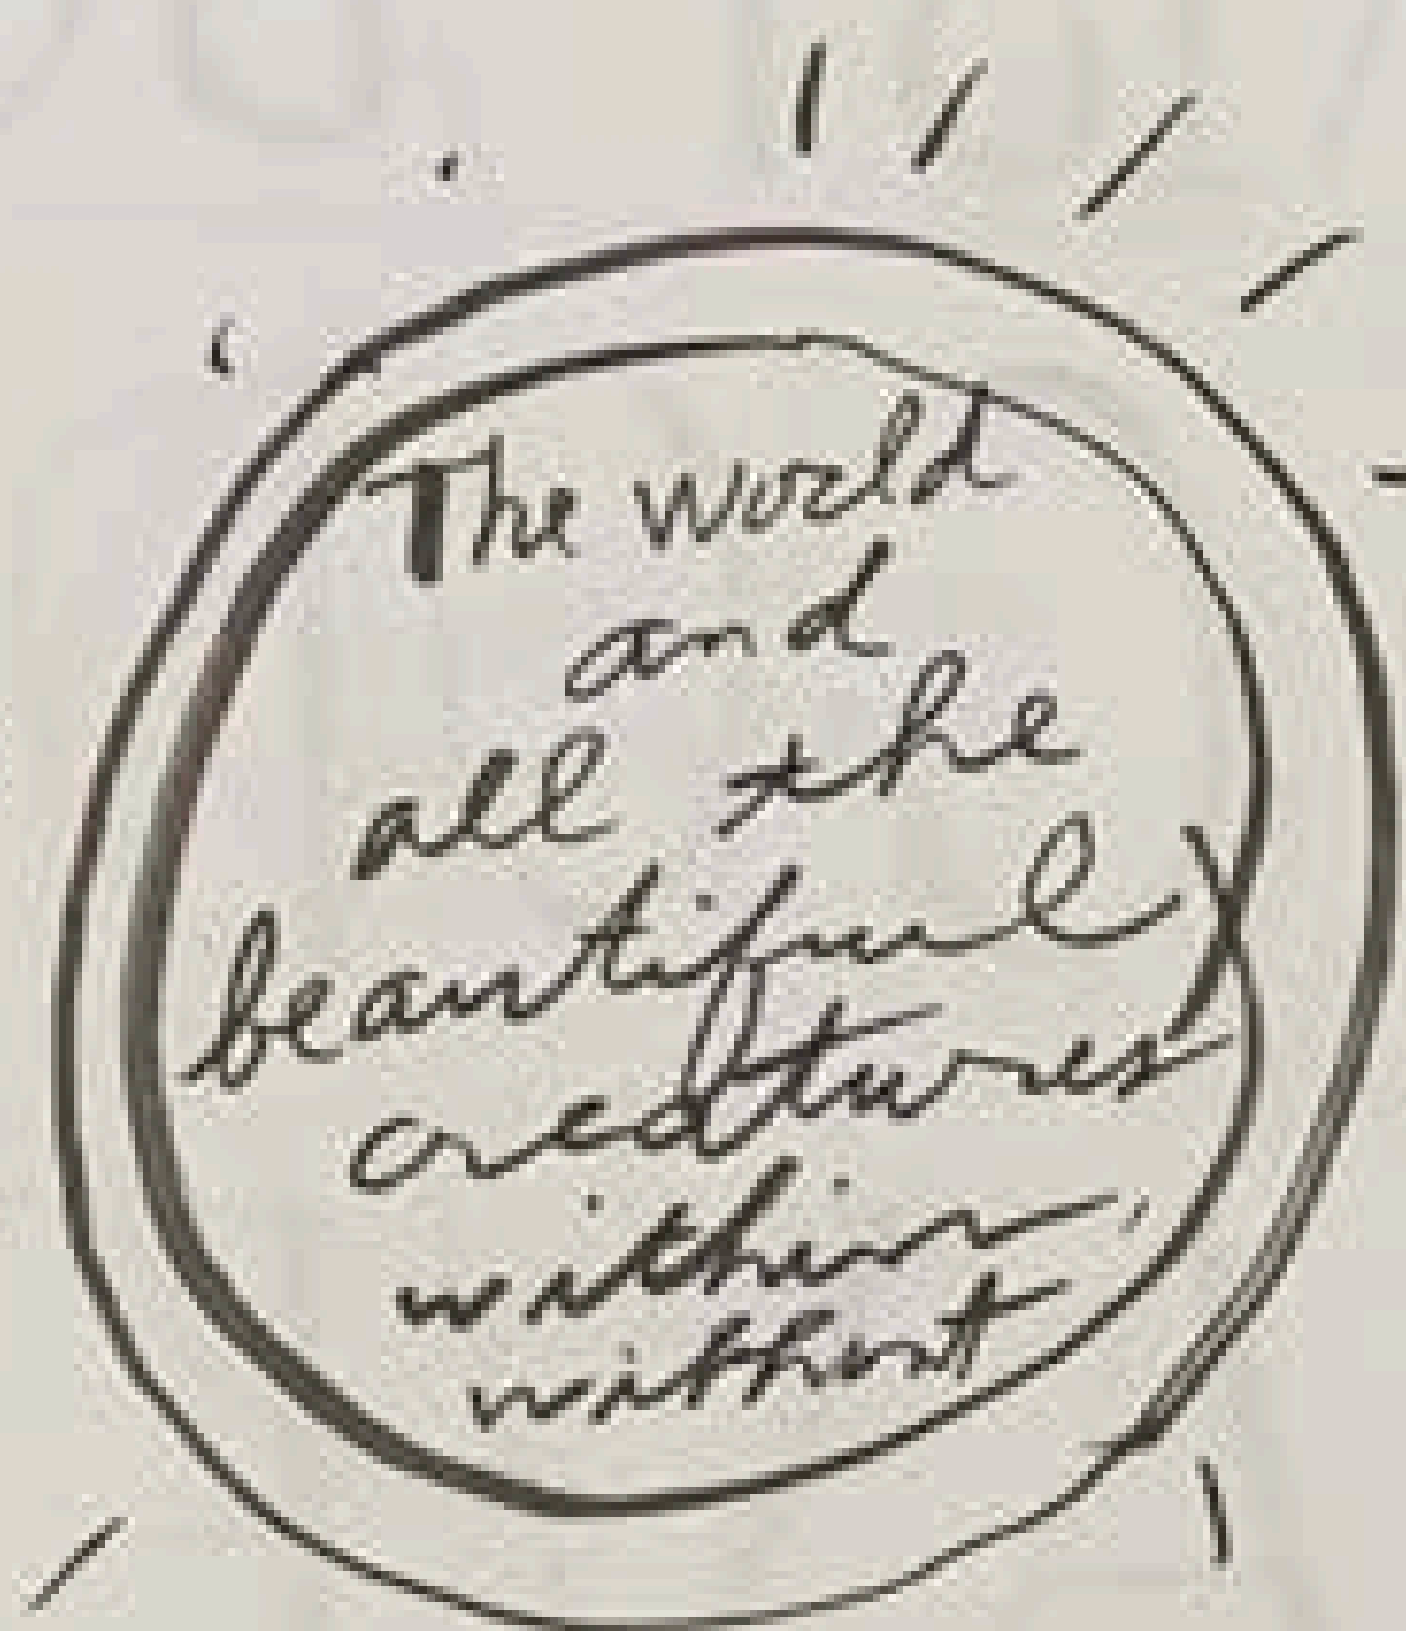 The world
and
all the
beautiful
creatures
within,
without